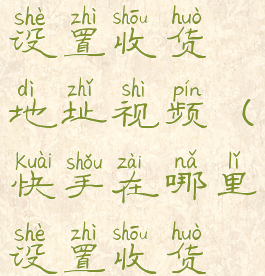 shè zhì shōu huò
设置收货
dì zhǐ shì pín
地址视频（
kuài shǒu zài nǎ lǐ
快手在哪里
shè zhì shōu huò
设置收货